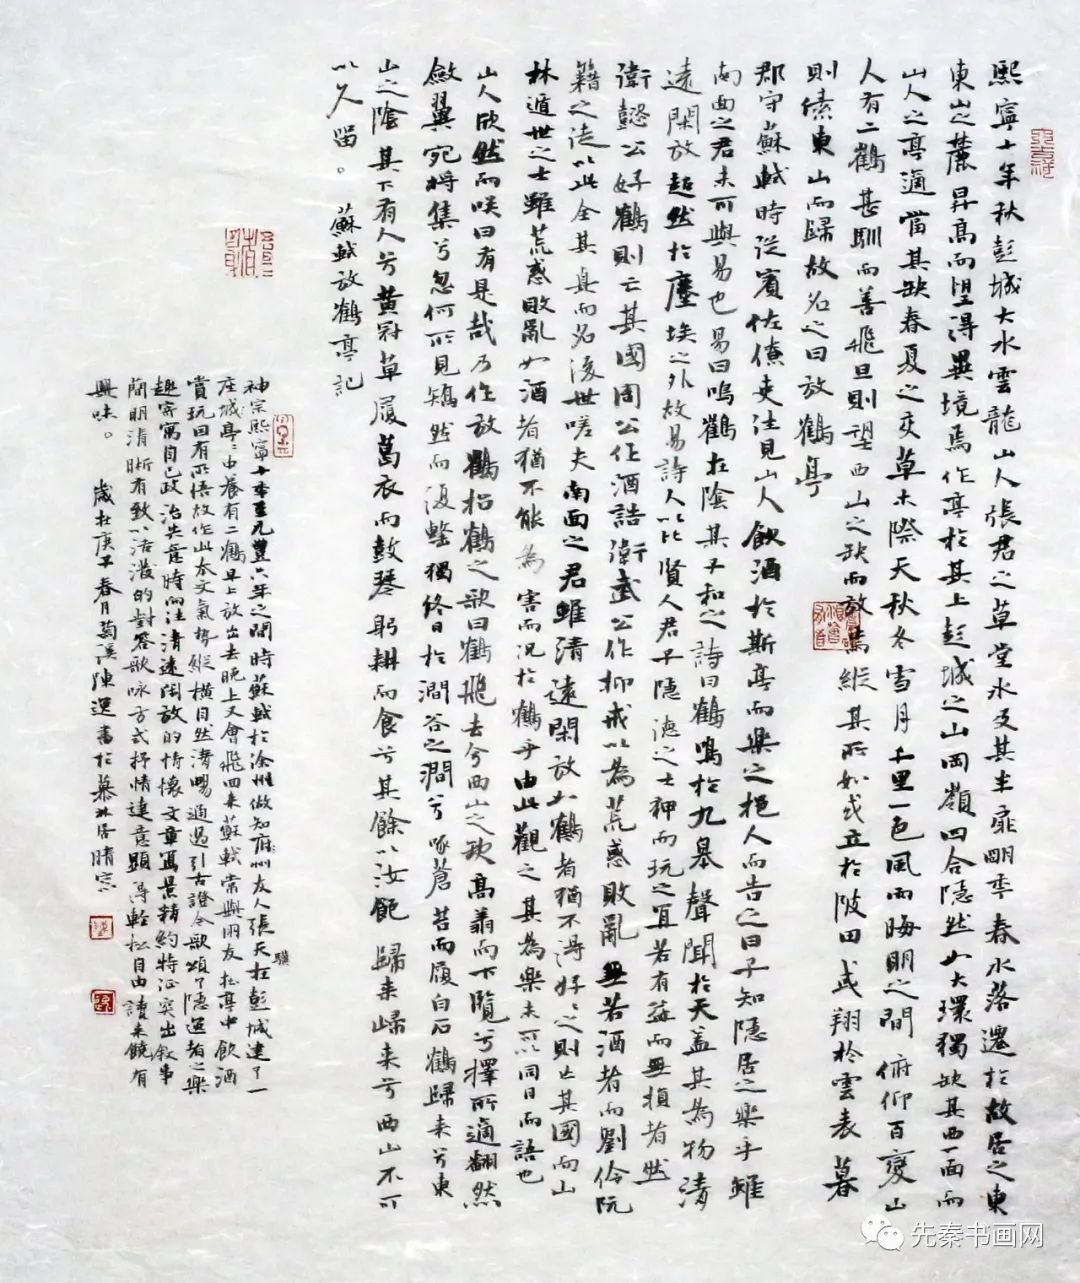 熙寧十年秋彭城大水雲龍山人張君之草堂水及其半扉明年春水落遷於故居之東
東山之麓昇高而望得異境焉作亭於其上彭城之山岡嶺四合隱然如大環獨缺其西一面而
山人之亭適當其缺春夏之交草木際天秋冬雪月千里一色風雨晦明之間俯仰百變山
人有二鶴甚馴而善飛旦則望西山之缺而放焉縱其所如或立於陂田或翔於雲表暮
則傃東山而歸故名之曰放鶴亭
郡守蘇軾時從賓佐僚吏往見山人飲酒於斯亭而樂之挹人而告之曰子知隱居之樂乎雖
南面之君未可與易也易曰鳴鶴在陰其子和之詩曰鶴鳴於九皋聲聞於天蓋其為物清
遠閑放超然於塵埃之外故易詩人以比賢人君子隱德之士狎而玩之宜若有益而無損者然
衛懿公好鶴則亡其國周公作酒誥衛武公作抑戒以為荒惑敗亂無若酒者而劉伶阮
籍之徒以此全其真而名後世嗟夫南面之君雖清遠閑放如鶴者猶不得好好之則亡其國而山
林遁世之士雖荒惑敗亂如酒者猶不能為害而況於鶴乎由此觀之其為樂未可以同日而語也
山人欣然而咲曰有是哉乃作放鶴招鶴之歌曰鶴飛去兮西山之缺高翥而下覽兮擇所適翻然
斂翼宛將集兮忽何所見矯然而復擊獨終日於澗谷之澗兮啄蒼苔而履白石鶴歸來兮東
山之陰其下有人兮黃冠草履葛衣而鼓琴躬耕而食兮其餘以汝飽歸來歸來兮西山不可
以久留。 蘇軾放鶴亭記
神宗熙寧十年至元豐六年之間時蘇軾於徐州做知府州友人張天在彭城建了一
驥
庄城亭亭中養有二鶴早上放出去晚上又會飛回來蘇軾常與朋友於亭中飲酒
賞玩回有所悟故作此本文氣勢縱橫自然清暢通過引古證今歌頌了隱逸者之樂
趣寄寓自己政治失意時向往清遠閑放的情懷文章寫景精約特征突出敘事
簡明清晰有致以活潑的對答歌咏方式抒情達意顯得輕松自由讀來饒有
興味。 歲在庚子春月菊溪陳選書於慕林居晴窗
先秦书画网